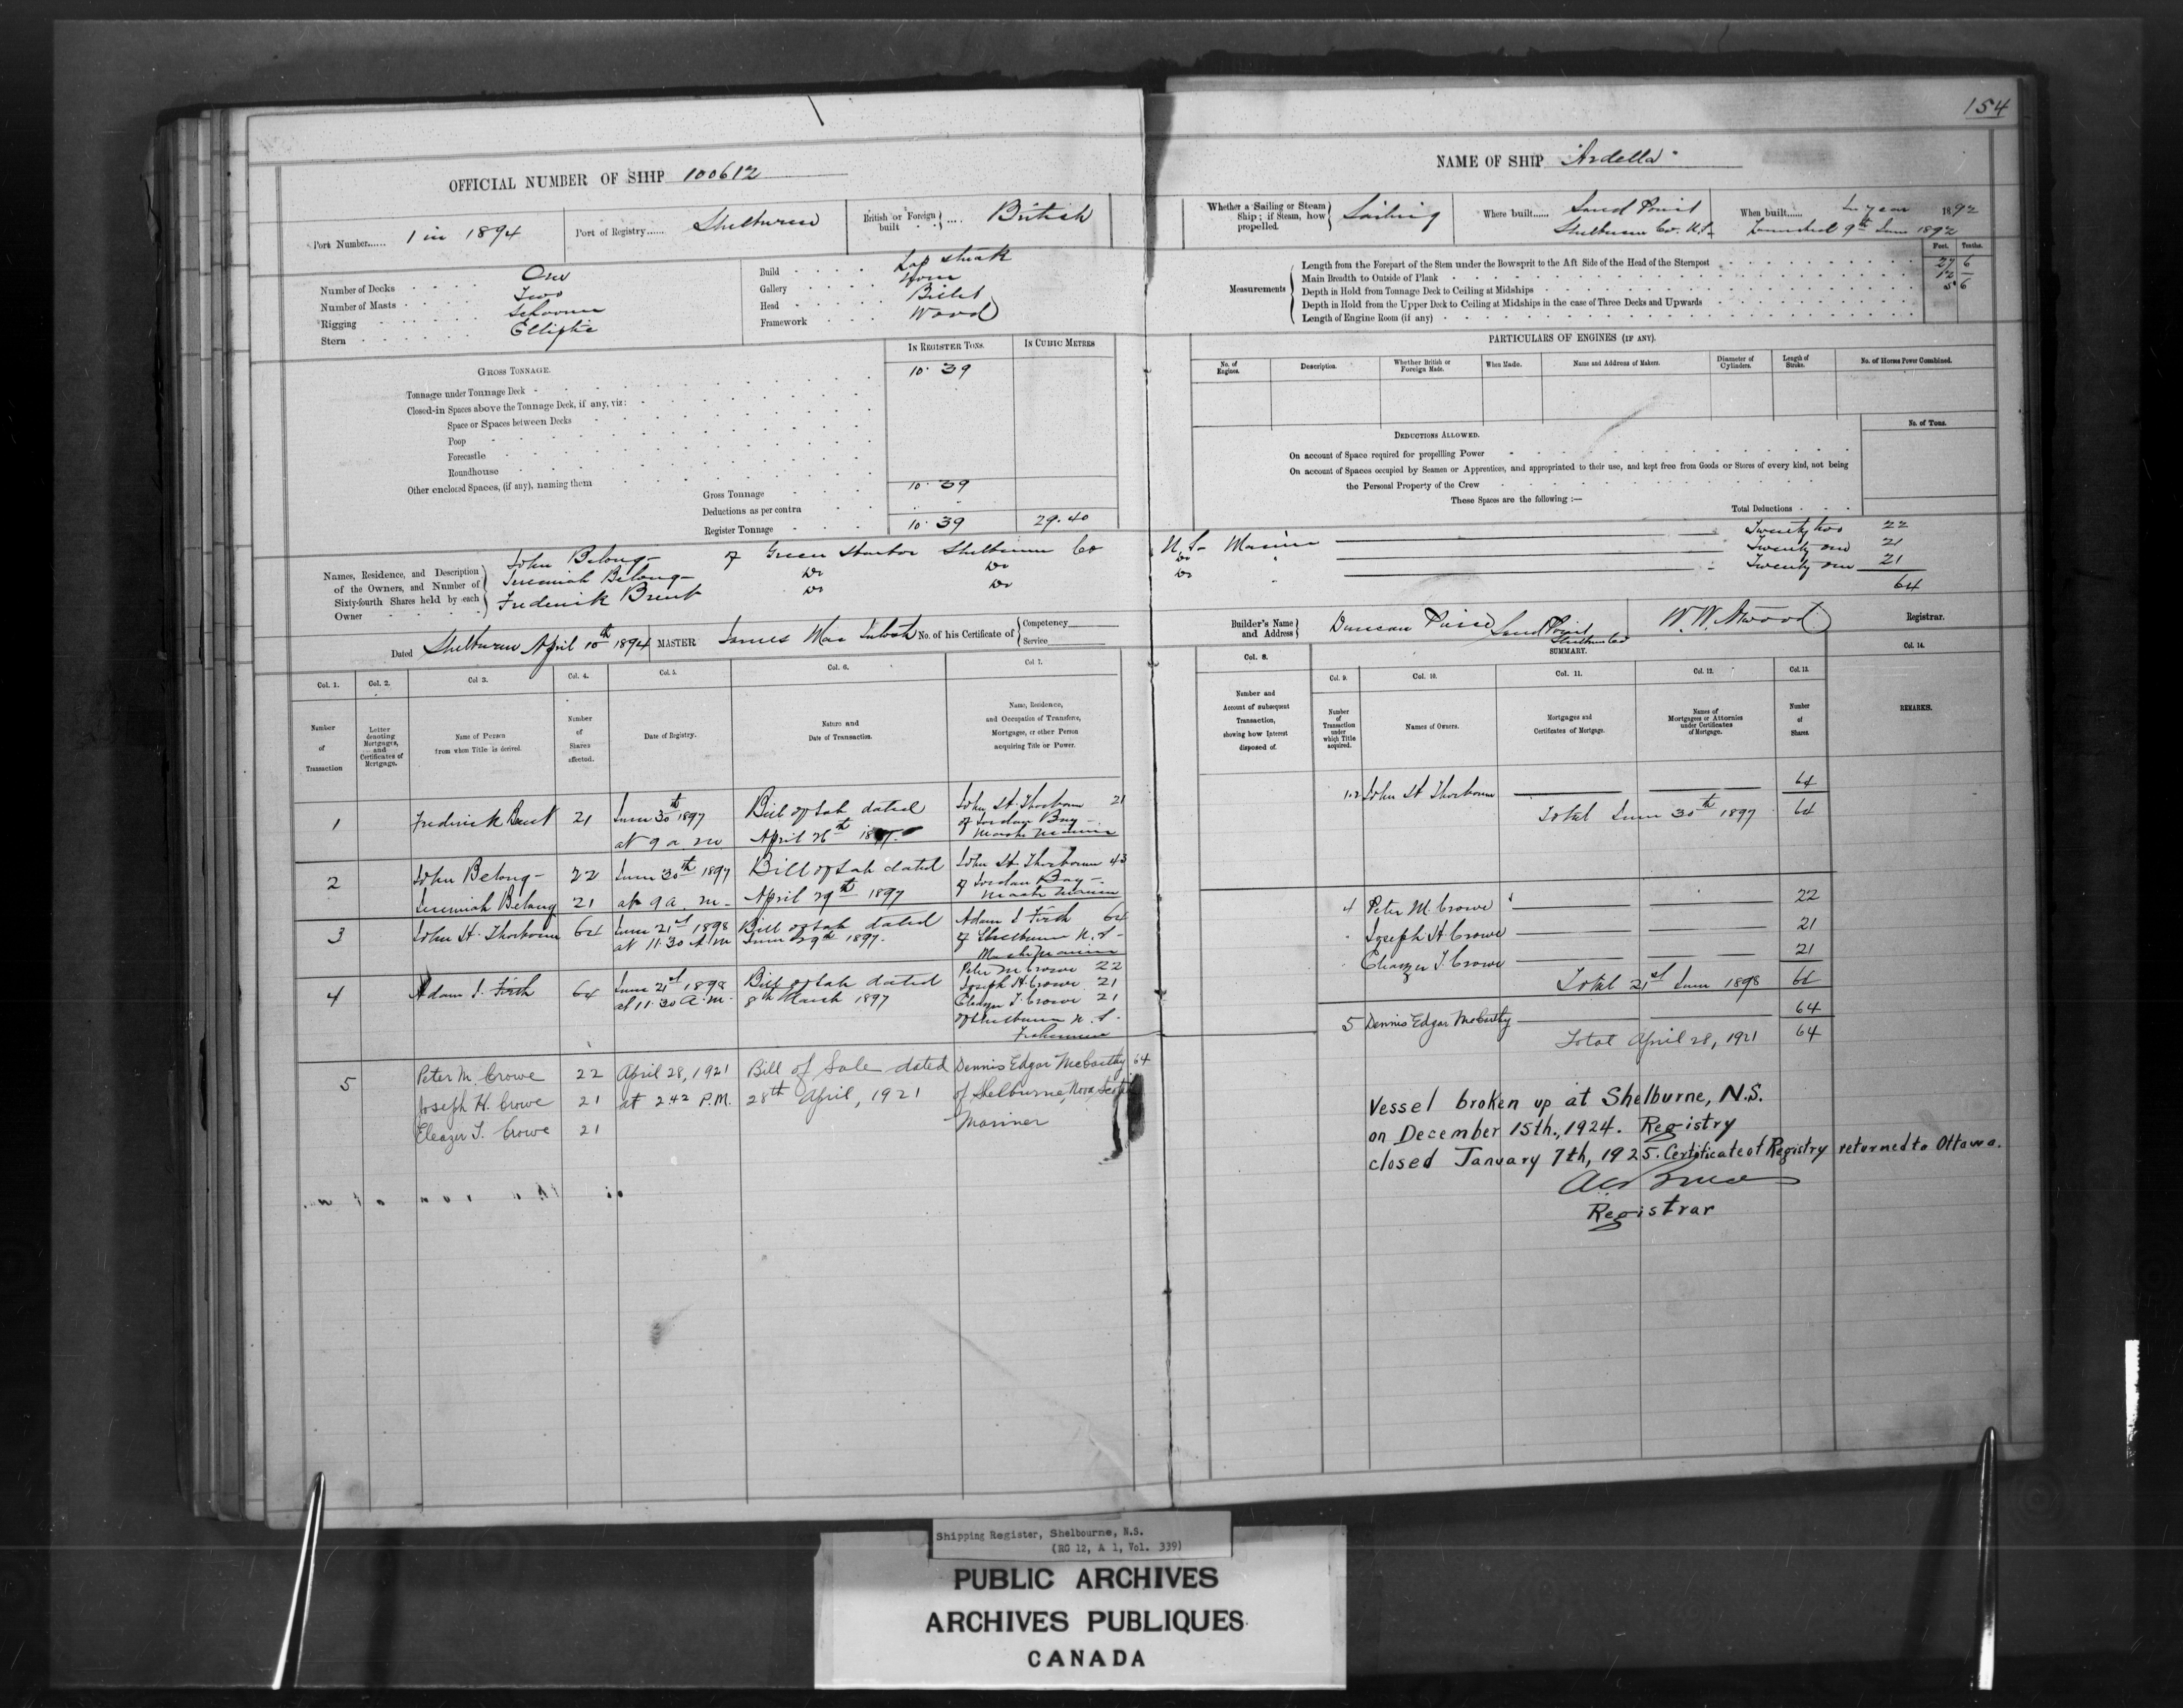 154
OFFICIAL NUMBER OF SHIP 100612
NAME OF SHIP "Ardella"
Port Number...... 1 in 1894
Port of Registry...... Shelburne
British or Foreign built .... British
Whether a Sailing or Steam Ship; if Steam, how propelled. Sailing
Where built...... Sand Point
Shelburne Co. N.S.
When built...... In year 1892
Launched 9th June 1892
Number of Decks One
Number of Masts Two
Rigging Schooner
Stern Elliptic
Build Lap streak
Gallery None
Head Billet
Framework Wood
Measurements
Feet. Tenths.
Length from the Forepart of the Stem under the Bowsprit to the Aft Side of the Head of the Sternpost 27 6
Main Breadth to Outside of Plank 12 —
Depth in Hold from Tonnage Deck to Ceiling at Midships 5 6
Depth in Hold from the Upper Deck to Ceiling at Midships in the case of Three Decks and Upwards
Length of Engine Room (if any)
GROSS TONNAGE.
IN REGISTER TONS.
IN CUBIC METRES
Tonnage under Tonnage Deck 10.39
Closed-in Spaces above the Tonnage Deck, if any, viz:
Space or Spaces between Decks
Poop
Forecastle
Roundhouse
Other enclosed Spaces, (if any), naming them
Gross Tonnage 10.39
Deductions as per contra
Register Tonnage 10.39 29.40
PARTICULARS OF ENGINES (IF ANY).
No. of Engines.
Description.
Whether British or Foreign Made.
When Made.
Name and Address of Makers.
Diameter of Cylinders.
Length of Stroke.
No. of Horses Power Combined.
DEDUCTIONS ALLOWED.
No. of Tons.
On account of Space required for propelling Power
On account of Spaces occupied by Seamen or Apprentices, and appropriated to their use, and kept free from Goods or Stores of every kind, not being
the Personal Property of the Crew
These Spaces are the following:—
Total Deductions
Names, Residence, and Description of the Owners, and Number of Sixty-fourth Shares held by each Owner
John Belong of Green Harbor Shelburne Co N.S. Mariner Twenty two 22
Jeremiah Belong do do do " Twenty one 21
Frederick Brent do do do " Twenty one 21
64
Dated Shelburne April 10th 1894
MASTER James Mac Intosh No. of his Certificate of Competency Service
Builder's Name and Address Duncan Sand Point Shelburne Co
W. W. Atwood Registrar.
SUMMARY.
Col. 1. Col. 2. Col 3. Col. 4. Col 5. Col. 6. Col 7. Col. 8. Col. 9. Col. 10. Col. 11. Col. 12. Col. 13. Col. 14.
Number of Transaction
Letter denoting Mortgages, and Certificates of Mortgage.
Name of Person from whom Title is derived.
Number of Shares affected.
Date of Registry.
Nature and Date of Transaction.
Name, Residence, and Occupation of Transferee, Mortgagee, or other Person acquiring Title or Power.
Number and Account of subsequent Transaction, showing how Interest disposed of.
Number of Transaction under which Title acquired.
Names of Owners.
Mortgages and Certificates of Mortgage.
Names of Mortgagees or Attornies under Certificates of Mortgage.
Number of Shares.
REMARKS.
1 Frederick Brent 21 June 30th 1897 Bill of Sale dated John H. Thorbourn 21
at 9 a m. April 26th 1897. of Jordan Bay
Master Mariner
2 John Belong 22 June 30th 1897 Bill of Sale dated John H Thorbourn 43
Jeremiah Belong 21 at 9 a. m. April 29th 1897 of Jordan Bay
Master Mariner
3 John H. Thorbourn 64 June 21st 1898 Bill of Sale dated Adam I Firth 64
at 11.30 A.M June 29th 1897. of Shelburne N.S.
Master Mariner
4 Adam I. Firth 64 June 21st 1898 Bill of Sale dated Peter M Crowe 22
at 11.30 a.m. 8th March 1897 Joseph H. Crowe 21
Eleazer T. Crowe 21
of Shelburne N.S.
Fishermen
5 Peter M. Crowe 22 April 28, 1921 Bill of Sale dated Dennis Edgar McCarthy 64
Joseph H. Crowe 21 at 2.42 P.M. 28th April, 1921 of Shelburne, Nova Scotia
Eleazer T. Crowe 21 Mariner
1.2 John H Thorbourn 64
Total June 30th 1897 64
4 Peter M. Crowe 22
" Joseph H. Crowe 21
" Eleazer T. Crowe 21
Total 21st June 1898 64
5 Dennis Edgar McCarthy 64
Total April 28, 1921 64
Vessel broken up at Shelburne, N.S.
on December 15th., 1924. Registry
closed January 7th, 1925. Certificate of Registry returned to Ottawa.
Registrar
Shipping Register, Shelbourne, N.S.
(RG 12, A 1, Vol. 339)
PUBLIC ARCHIVES
ARCHIVES PUBLIQUES
CANADA